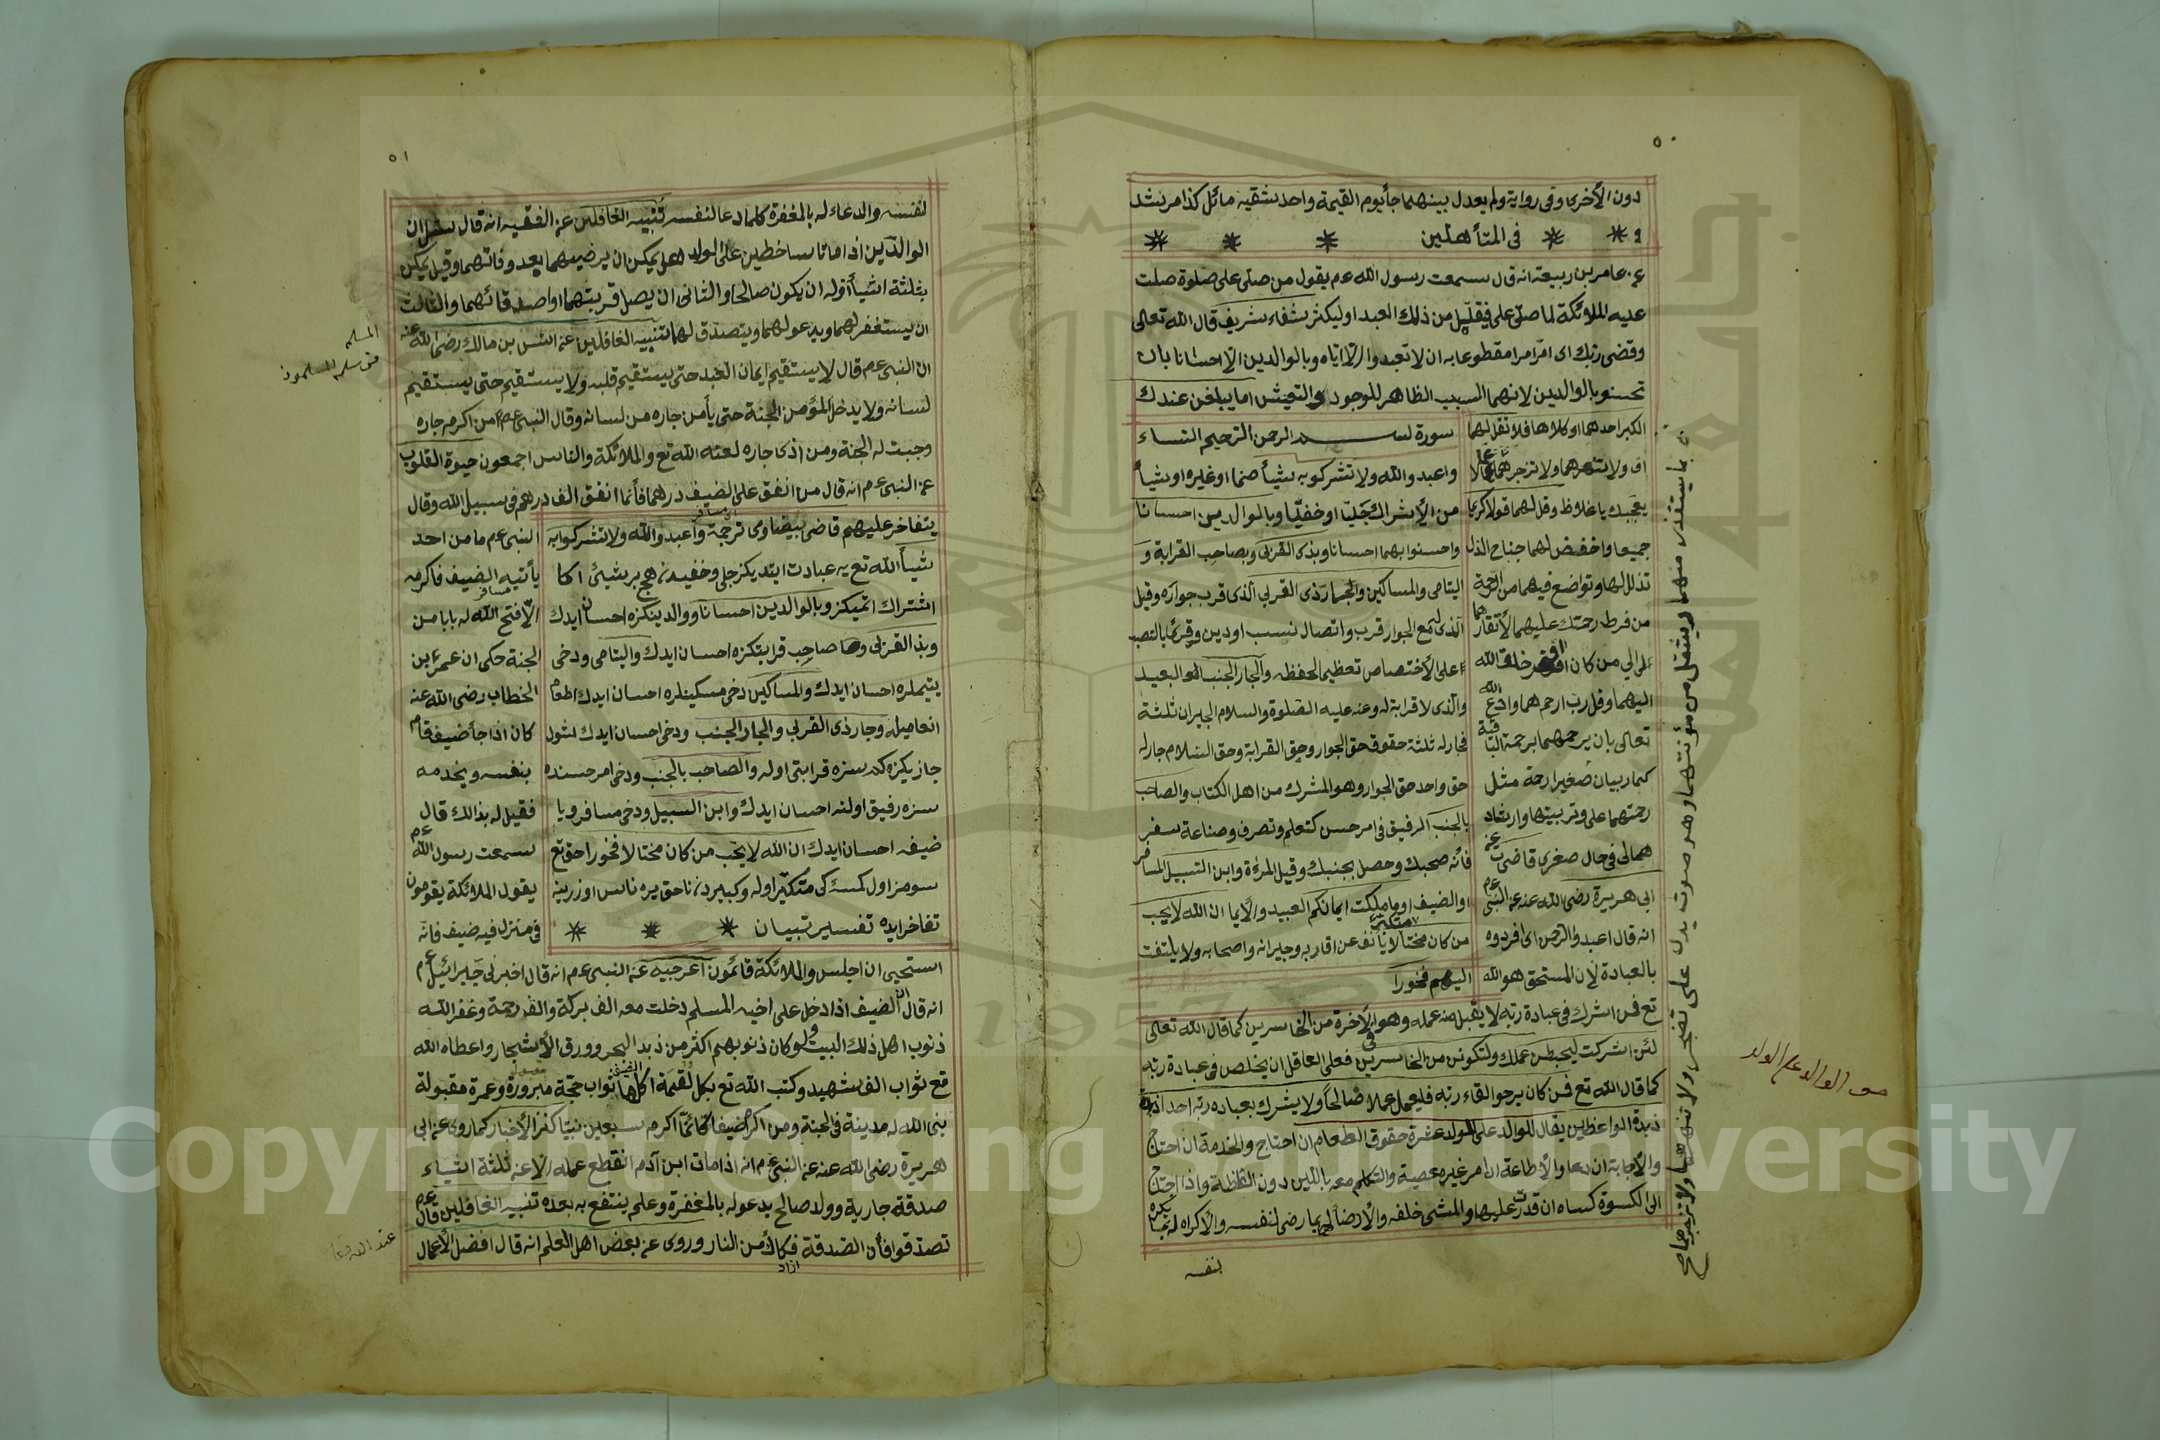 ٥٠
دون الأخرى وفى رواية ولم يعدل بينهما جأ يوم القيمة واحد شقيه مائل كذا مرشد
و فى المتأهلين
عن عامر بن ربيعة انه قال سمعت رسول الله عم يقول من صلى على صلوة صلت
عليه الملائكة لما صلّى على فيقلّل من ذلك العبد او ليكثر شفاء شريف قال الله تعالى
وقضى ربك اى امر امرا مقطوعا به ان لا تعبدوا الا اياه وبالوالدين الا احسانا بان
تحسنو بالوالدين لانهما السبب الظاهر للوجود والتعيش اما يبلغن عندك
الكبر احدهما او كلاهما فلا تقل لهما
اف ولا تنهرهما ولا تزجرهما
يعجبك باغلاظ وقل لهما قولا كريما
جميعا واخفض لهما جناح الذل
تذلل لهما وتواضع فيهما من الرحمة
من فرط رحمتك عليهما لأفتقارهما
الى من كان افقر خلق الله
اليهما وقل رب ارحمهما وادع الله
تعالى بان يرحمهما برحمة الباقية
كما ربيان صغيرا رحمة مثل
رحمتهما على وتربيتهما وارشاد
همالى فى حال صغرى قاضى عن
ابى هريرة رضى الله عنه عن النبى عم
انه قال اعبدوا الرحمن اى افردوه
بالعبادة لأن المستحق هو الله
سورة بسم الرحمن الرحيم النساء
واعبدوا الله ولا تشركو به شيأ صنما او غيره او شيأ
من الأشراك جليّا او خفيّا وبالوالدين احسانا
واحسنوا بهما احسانا وبذى القربى وبصاحب القرابة و
اليتامى والمساكين والجار ذى القربى الذى قرب جواره وقيل
الذى له مع الجوار قرب واتصال بنسب او دين وقرئ بالنصب
على الأختصاص تعظيما لحقه والجار الجنب البعيد
والذى لا قرابة له وعنه عليه الصلوة والسلام الجيران ثلثة
فجار له ثلثة حقوق حق الجوار وحق القرابة وحق السلام جار له
حق واحد حق الجوار وهو المشرك من اهل الكتاب والصاحب
بالجنب الرفيق فى امر حسن كتعلم وتصرف وصناعة سفر
فانه صحبك وحصل بجنبك وقيل المرءة وابن السبيل المسافر
او الضيف او ما ملكت ايمانكم العبيد والاما ان الله لا يحب
من كان مختالا متكبرا يانف عن اقاربه وجيرانه واصحابه ولا يلتفت
اليهم فخورا
تع فمن اشرك فى عبادة ربه لا يقبل منه عمله وهو فى الأخرة من الخاسرين كما قال الله تعالى
لئن اشركت ليحبطن عملك ولتكونن من الخاسرين فعلى العاقل ان يخلص فى عبادة ربه
كما قال الله تع فمن كان يرجوا لقاء ربه فليعمل عملا صالحا ولا يشرك بعباده ربه احدا
زبدة الواعظين يقال للوالد على الولد عشرة حقوق الطعام ان احتاج والخدمة ان احتاج
والأجابة ان دعا والأطاعة ان امر غيره معصية والتكلم معه باللين دون الغلظة واذا احتاج
الى الكسوة كساه ان قدر عليها والمشى خلفه والأرضا لهما بما رضى لنفسه والأكراه لهما بما يكره
بنفسه
حق الوالد على الولد
٥١
لنفسه والدعاء له بالمغفرة كلما دعا لنفسه تنبيه الغافلين عن الفقيه انه قال سئل ان
الوالدين اذا ماتا ساخطين على الولد هل يمكن ان يرضيهما بعد وفاتهما وقيل يمكن
بثلثة اشيأ اوله ان يكون صالحا والثانى ان يصل قربتهما او اصدقائهما والثالث
ان يستغفر لهما ويدعو لهما ويتصدق لهما تنبيه الغافلين عن انس بن مالك رضى الله عنه
ان النبى عم قال لا يستقيم ايمان العبد حتى يستقيم قلبه ولا يستقيم حتى يستقيم
لسانه ولا يدخل المؤمن الجنة حتى يأمن جاره من لسانه وقال النبى عم من اكرم جاره
وجبت له الجنة ومن اذى جاره لعنه الله تع والملائكة والناس اجمعون حيوة القلوب
عن النبى عم انه قال من انفق على الضيف درهما فأنما انفق الف درهم فى سبيل الله وقال
النبى عم ما من احد
يأتيه الضيف فاكرمه
الا فتح الله له بابا من
الجنة حكى ان عمر بن
الخطاب رضى الله عنه
كان اذا جأ ضيف قام
بنفسه ويخدمه
فقيل له بذالك قال
سمعت رسول الله عم
يقول الملائكة يقومون
فى منزل فيه ضيف فانه
يتفاخر عليهم قاضى بيضاوى ترجمة واعبدوا الله ولا تشركوا به
شيأ الله تع يه عبادت ايتديكز جلى وخفيدن هيچ بر شيئ اكا
اشتراك اتميكز وبالوالدين احسانا ووالدينكزه احسان ايدك
وبذا القربى وهما صاحب قرابتكزه احسان ايدك واليتامى ودخى
يتيملره احسان ايدك والمساكين دخى مسكينلره احسان ايدك اطعام
انعام ايله وجار ذى القربى والجار الجنب ودخى احسان ايدك شول
جاريكزه كه سزه قرابتى اوله والصاحب بالجنب ودخى امر حسنده
سزه رفيق اولنه احسان ايدك وابن السبيل ودخى مسافر ويا
ضيفه احسان ايدك ان الله لا يحب من كان مختالا فخورا حق تع
سومز اول كمسه كى متكبر اوله وكبيردن ناحق يره ناس اوزرينه
تفاخر ايده تفسير تبيان
استحيى ان اجلس والملائكة قائمون اعرجيه عن النبى عم انه قال اخبرنى جبرائيل عم
انه قال ان الضيف اذا دخل على اخيه المسلم دخلت معه الف بركة والف رحمة وغفر الله
ذنوب اهل ذلك البيت ولو كان ذنوبهم اكثر من زبد البحر وورق الأشجار واعطاه الله
تع ثواب الف شهيد وكتب الله تع بكل لقمة اكلها الضيف ثواب حجة مبرورة وعمرة مقبولة
بنى الله له مدينة فى الجنة ومن اكرم ضيفا كانما اكرم سبعين نبيا كنز الأخبار كما روى عن ابى
هريرة رضى الله عنه عن النبى عم انه اذا مات ابن آدم انقطع عمله الا عن ثلثة اشياء
صدقة جارية وولد صالح يدعو له بالمغفرة وعلم ينتفع به بعده تنبيه الغافلين قال عم
تصدقوا فأن الصدقة فكاك من النار وروى عن بعض اهل العلم انه قال افضل الأعمال
ازاد
المسلم
Copyright © King Saud University
1957